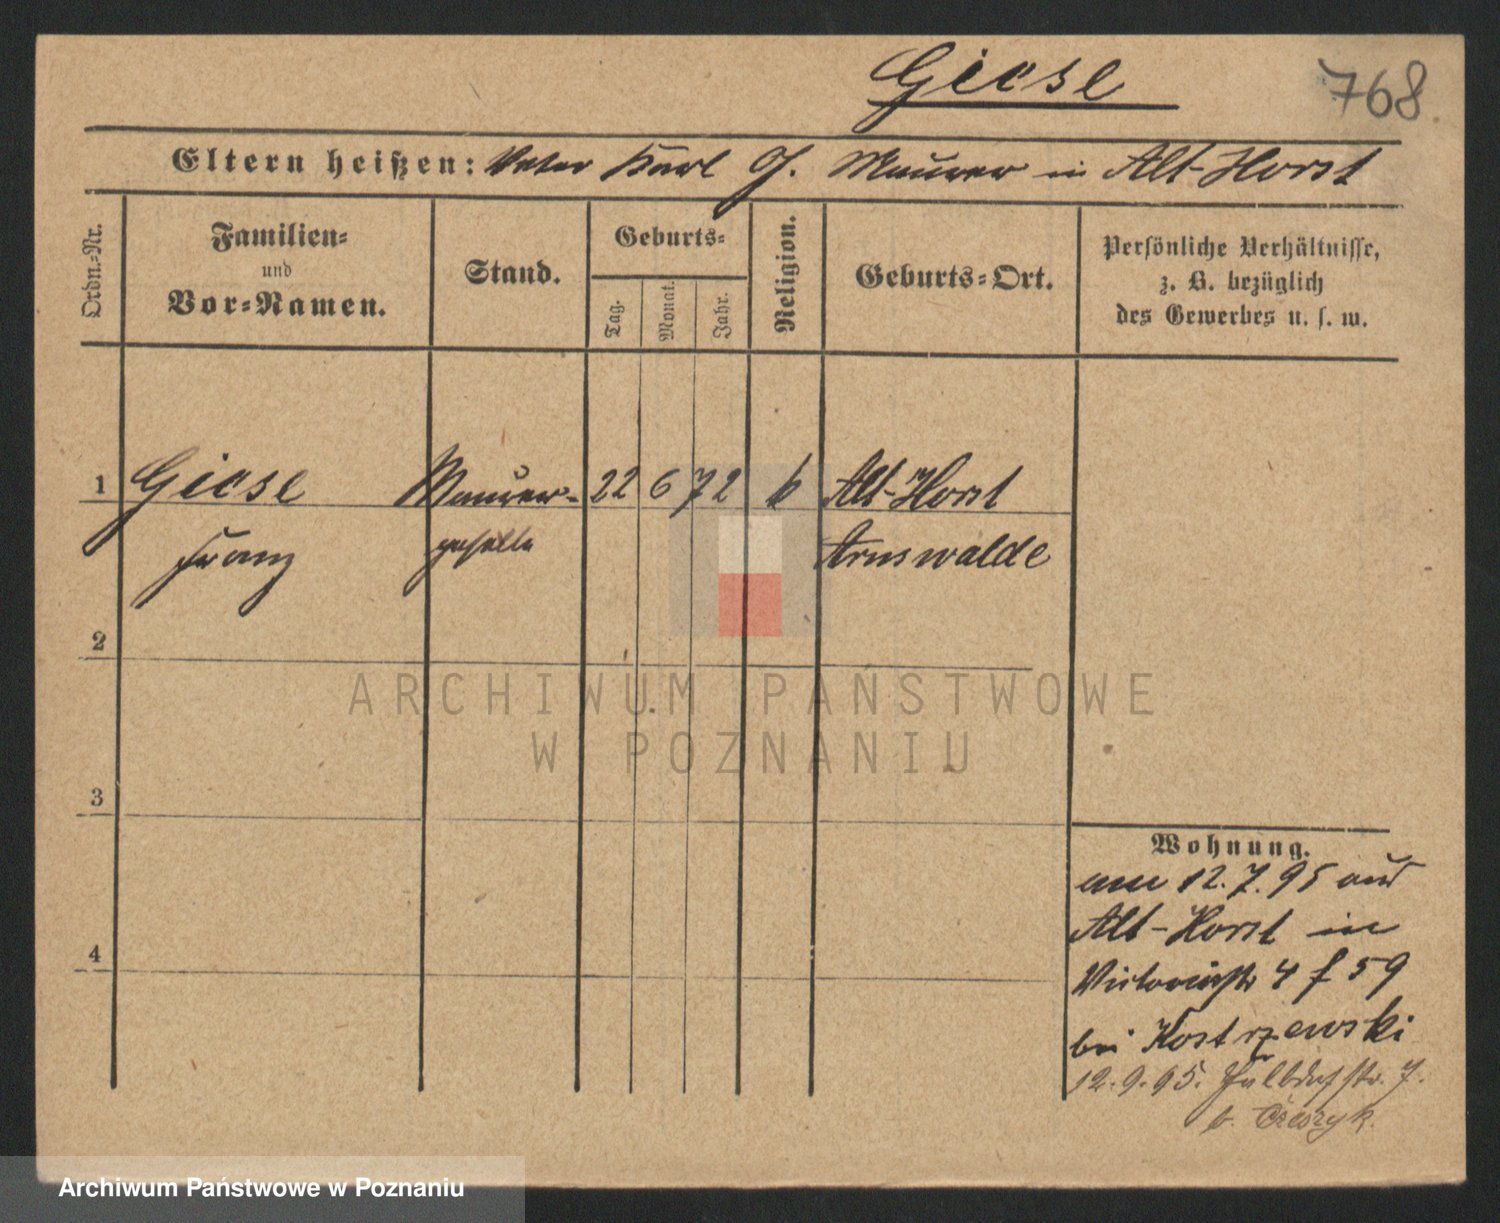 Giese
768.
Eltern heißen: Vater Karl G. Maurer in Alt-Horst
Ordn.-Nr.
Familien-
und
Vor-Namen.
Stand.
Geburts-
Tag.
Monat.
Jahr.
Religion.
Geburts-Ort.
Persönliche Verhältnisse,
z. B. bezüglich
des Gewerbes u. s. w.
1 Giese Maurer- 22 6 72 Alt-Horst
Franz geselle Arnswalde
2
3
4
Wohnung.
am 12.7.95 aus
Alt-Horst in
Victoriastr 4 f 59
bei Kostrzewski
12.9.95. Halbdorfstr. 7.
b.
ARCHIWUM PAŃSTWOWE
W POZNANIU
Archiwum Państwowe w Poznaniu